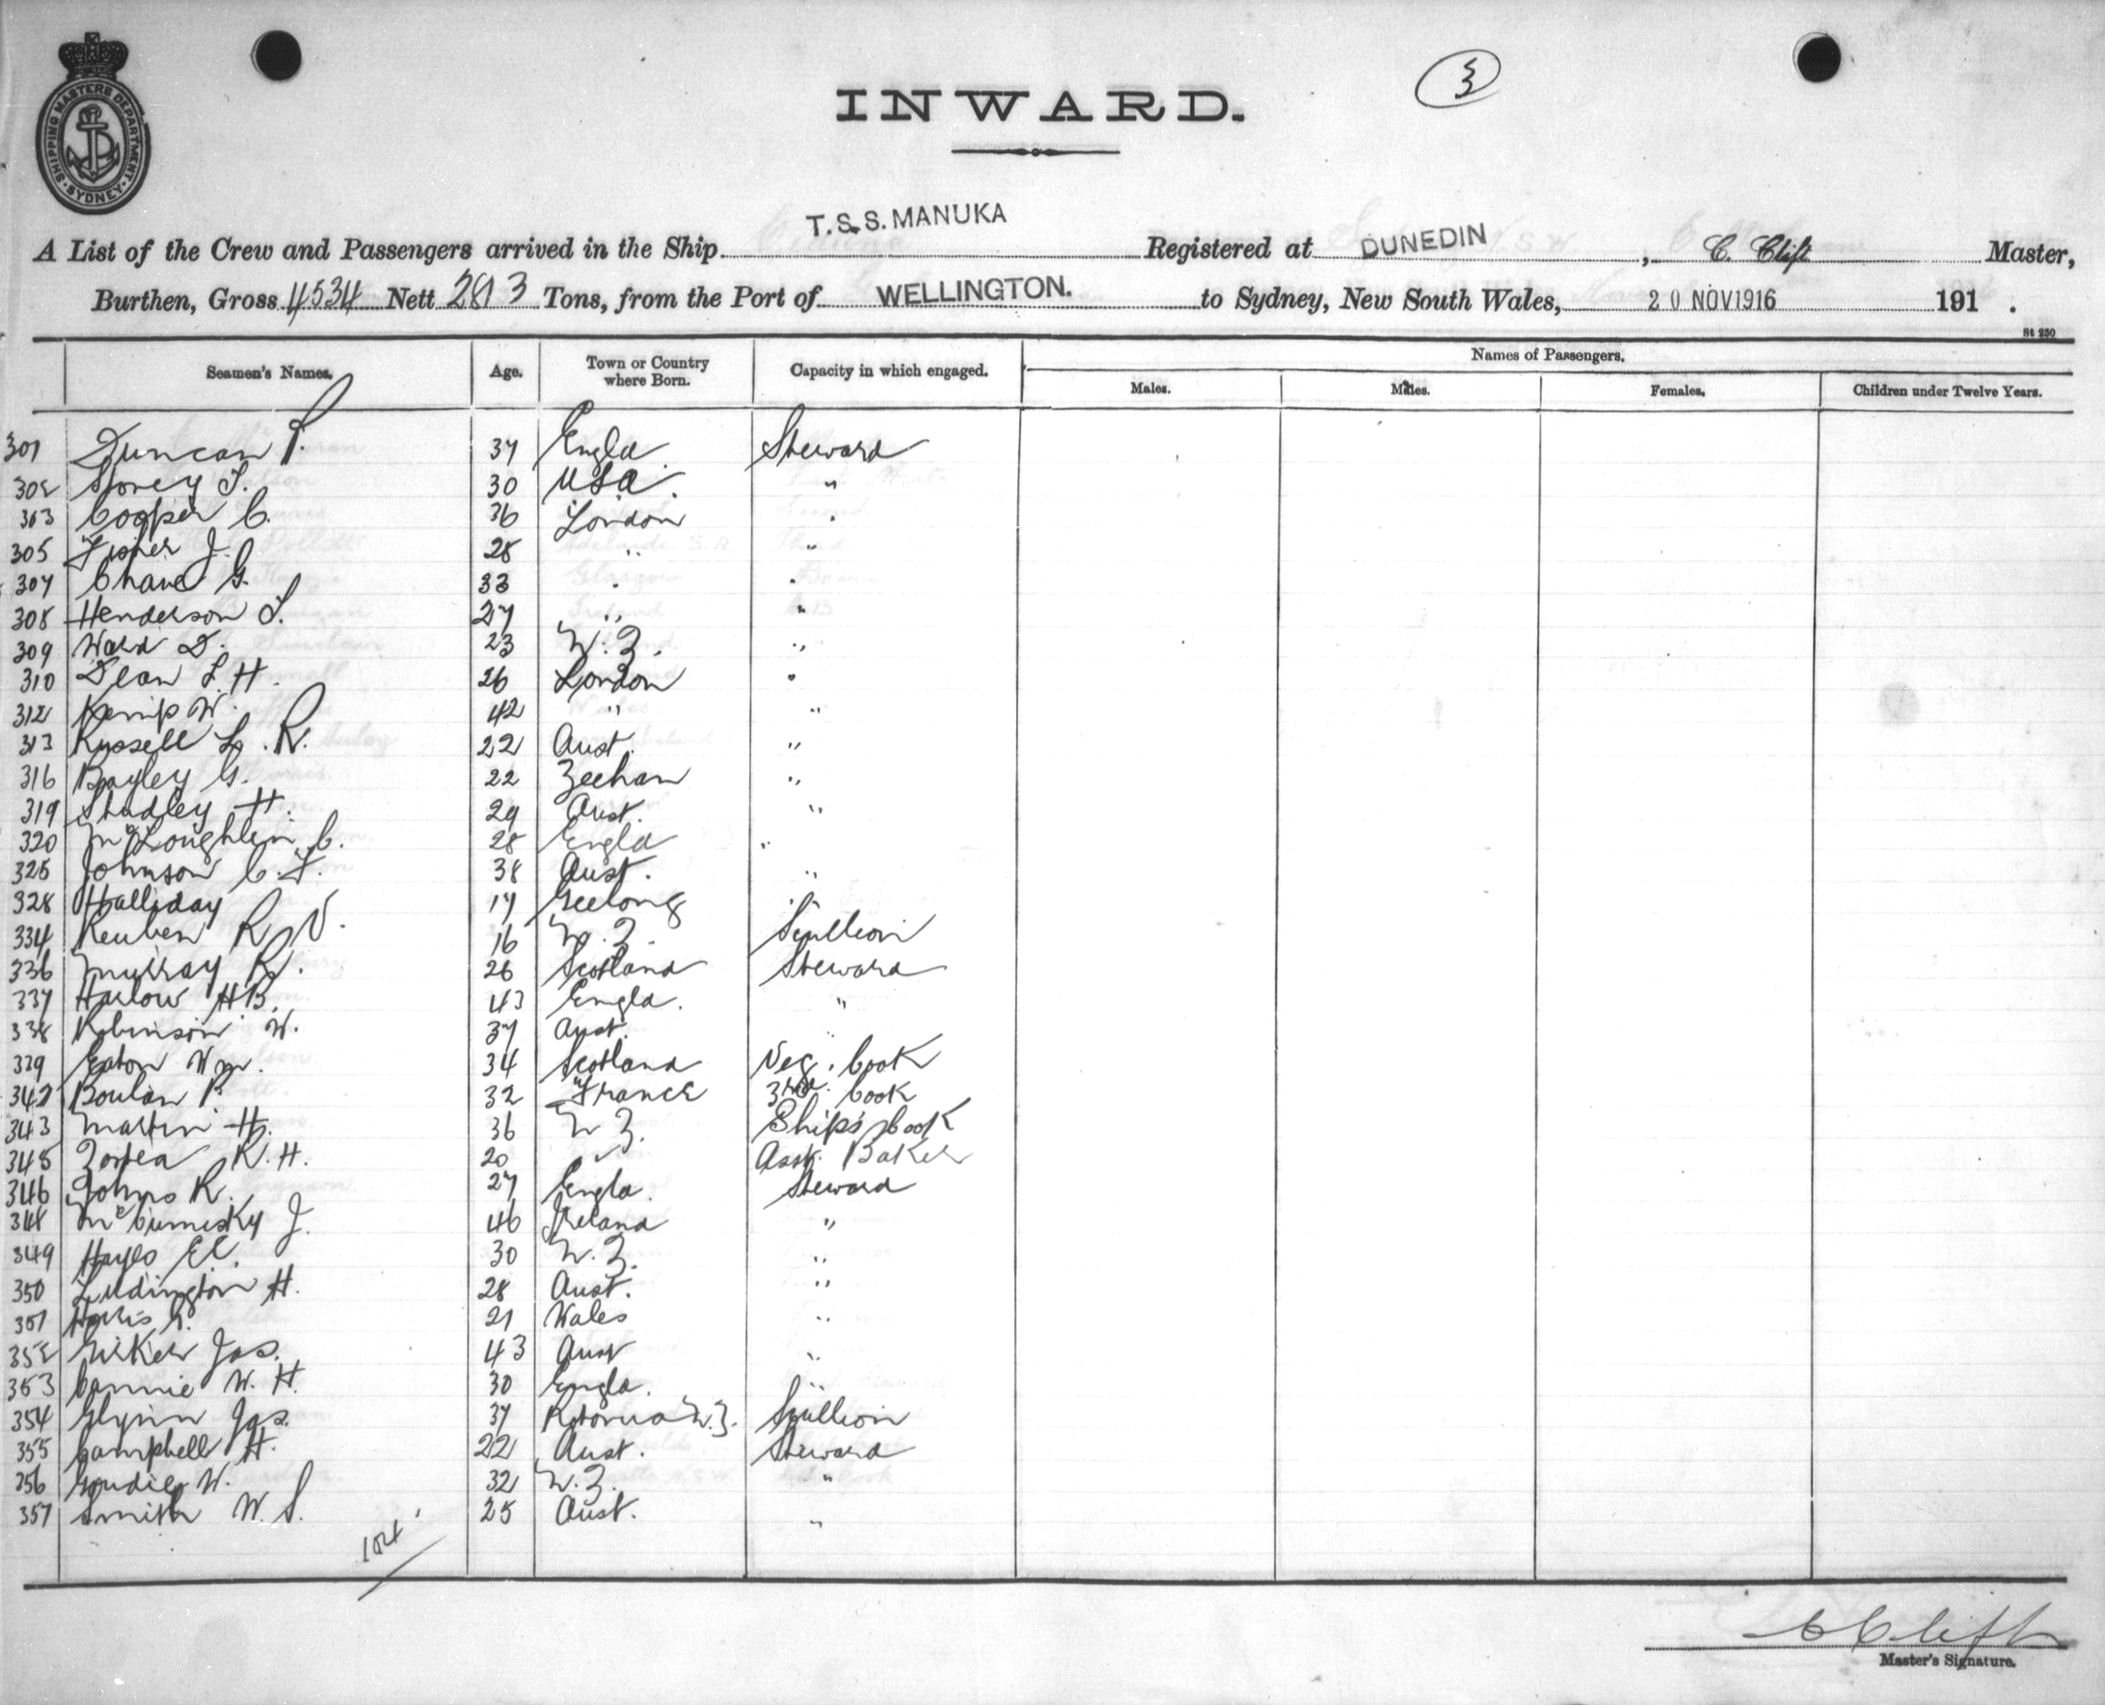 SHIPPING MASTERS DEPARTMENT
SYDNEY
3
INWARD.
A List of the Crew and Passengers arrived in the Ship T.S.S. MANUKA Registered at DUNEDIN, C. Clift Master,
Burthen, Gross 4534 Nett 2813 Tons, from the Port of WELLINGTON. to Sydney, New South Wales, 20 NOV 1916 191 .
St 230
Seamen's Names. Age. Town or Country where Born. Capacity in which engaged. Names of Passengers.
Males. Males. Females. Children under Twelve Years.
301 Duncan P. 37 Engld. Steward
302 Storey T. 30 USA. "
303 Cooper C. 36 London "
305 Fisher J. 28 " "
307 Chave G. 33 " "
308 Henderson T. 27 " "
309 Ward D. 23 N.Z. "
310 Dean L.H. 26 London "
312 Kemp W. 42 " "
313 Russell L.R. 22 Aust. "
316 Bayley G. 22 Zeehan "
319 Studley H. 29 Aust. "
320 McLoughlin C. 28 Engld "
325 Johnson C.F. 38 Aust. "
328 Halliday 17 Geelong "
334 Reuben R V. 16 N.Z. Scullion
336 Murray R. 26 Scotland Steward
337 Harlow H.B. 43 Engld. "
338 Robinson W. 37 Aust. "
339 Eaton Wm. 34 Scotland Veg. Cook
342 Boulan P 32 France 3rd. Cook
343 Martin H. 36 N Z. Ship's Cook
345 R.H. 20 " Asst. Baker
346 Johns R. 27 Engld. Steward
348 McCumisky J. 46 Ireland "
349 Hayes E.C. 30 N.Z. "
350 Ludington H. 28 Aust. "
351 Harris G. 21 Wales "
352 Jas. 43 Aust "
353 Cannie W.H. 30 Engld. "
354 Glynn Jas. 37 Rotorua N.Z. Scullion
355 Campbell H. 22 Aust. Steward
356 Goudie W. 32 N.Z. "
357 Smith W.S. 25 Aust. "
104
C Clift
Master's Signature.